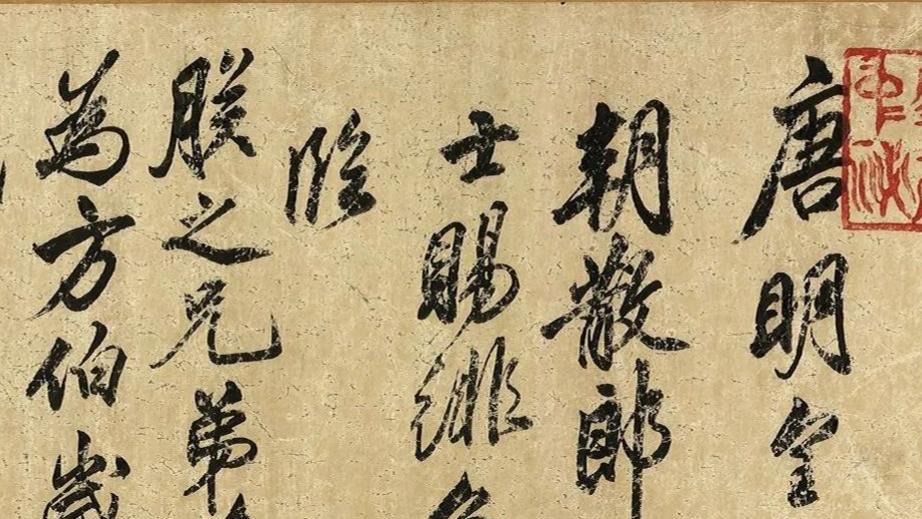 唐明皇
朝散郎
士賜緋
臨
朕之兄弟
為方伯歲